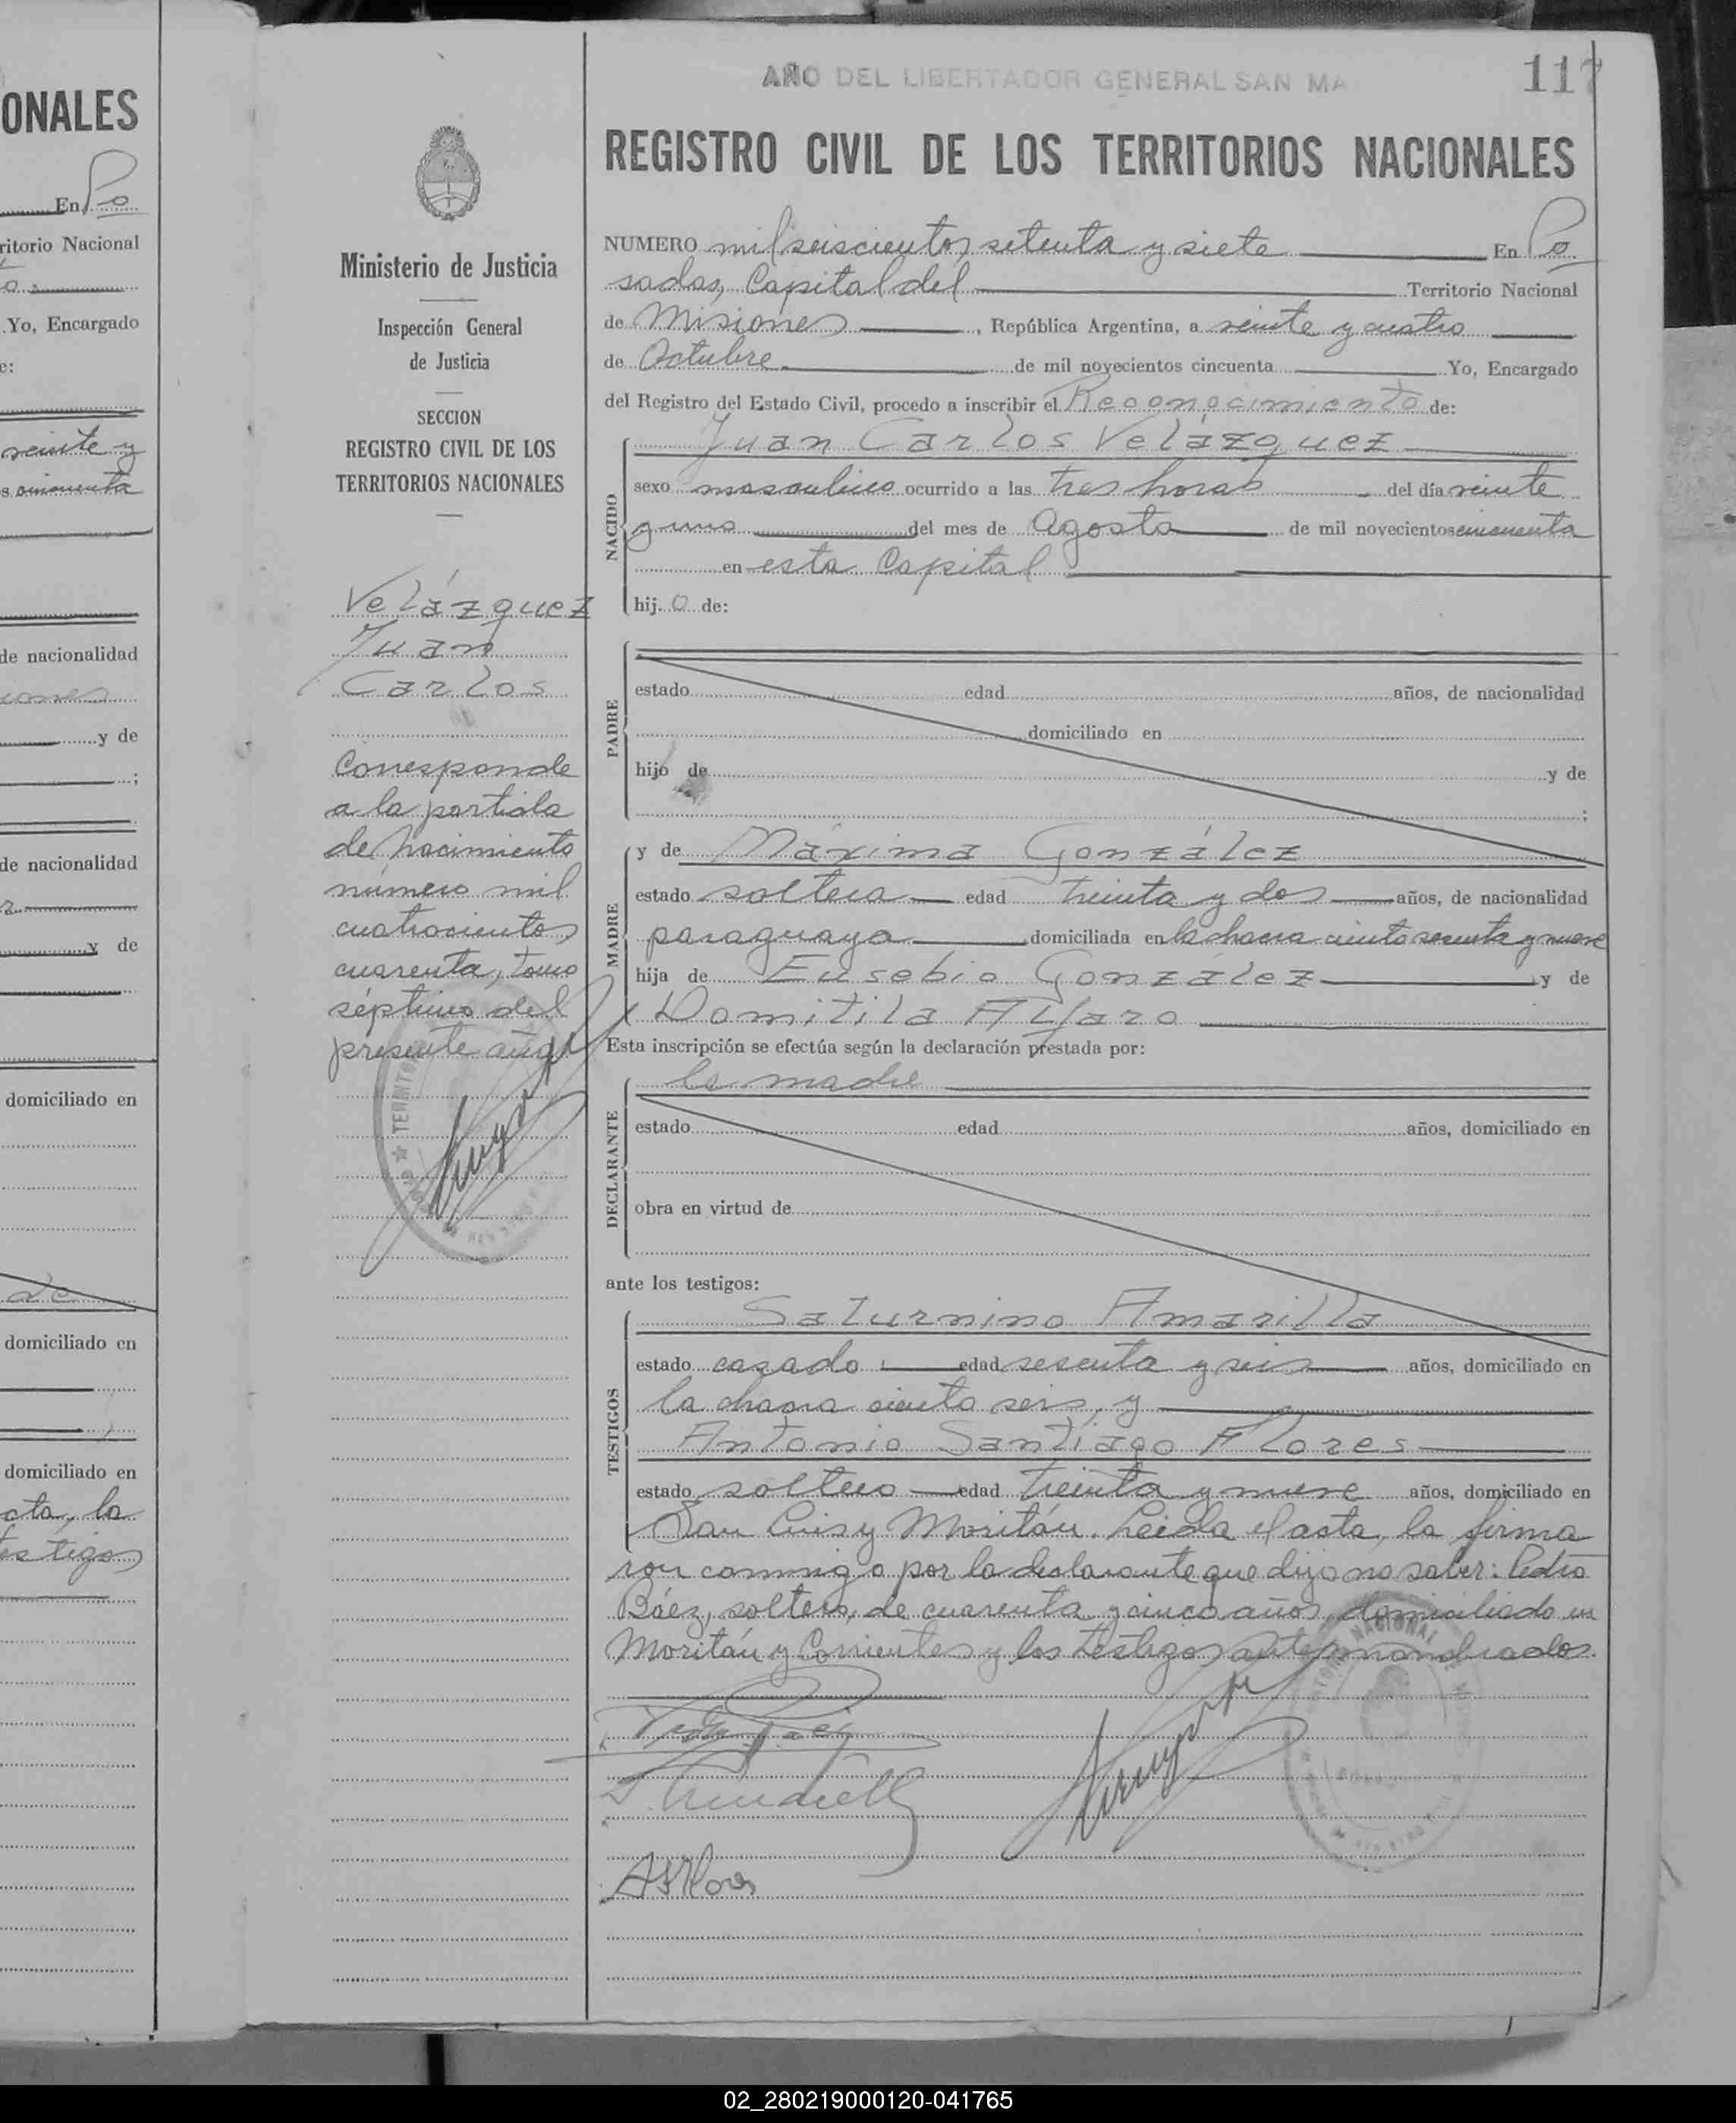 ONALES
En Po
ritorio Nacional
Yo, Encargado
veinte y
s cincuenta
de nacionalidad
y de
de nacionalidad
y de
domiciliado en
domiciliado en
domiciliado en
acta, la
testigos
Ministerio de Justicia
Inspección General
de Justicia
SECCION
REGISTRO CIVIL DE LOS
TERRITORIOS NACIONALES
Velázquez
Juan
Carlos
Corresponde
a la partida
de Nacimiento
número mil
cuatrocientos
cuarenta, tomo
séptimo del
presente año
AÑO DEL LIBERTADOR GENERAL SAN MA
117
REGISTRO CIVIL DE LOS TERRITORIOS NACIONALES
NUMERO mil seiscientos setenta y siete En Po
sadas, Capital del Territorio Nacional
de Misiones, República Argentina, a veinte y cuatro
de Octubre de mil novecientos cincuenta Yo, Encargado
del Registro del Estado Civil, procedo a inscribir el Reconocimiento de:
Juan Carlos Velázquez
NACIDO
sexo masculino ocurrido a las tres horas del día veinte
y uno del mes de Agosto de mil novecientos cincuenta
en esta Capital
hij.o de:
PADRE
estado edad años, de nacionalidad
domiciliado en
hijo de y de
;
MADRE
y de Máxima González
estado soltera edad treinta y dos años, de nacionalidad
paraguaya domiciliada en la chacra ciento sesenta y nueve
hija de Eusebio González y de
Domitila Alfaro
Esta inscripción se efectúa según la declaración prestada por:
la madre
DECLARANTE
estado edad años, domiciliado en
obra en virtud de
ante los testigos:
TESTIGOS
Saturnino Amarilla
estado casado edad sesenta y seis años, domiciliado en
la chacra ciento seis, y
Antonio Santiago Flores
estado soltero edad treinta y nueve años, domiciliado en
San Luis y Moritán. Leída el acta, la firma
ron conmigo por la declarante que dijo no saber: Pedro
Báez, soltero, de cuarenta y cinco años, domiciliado en
Moritán y Corrientes y los testigos antes nombrados.
ASFlores
02_280219000120-041765